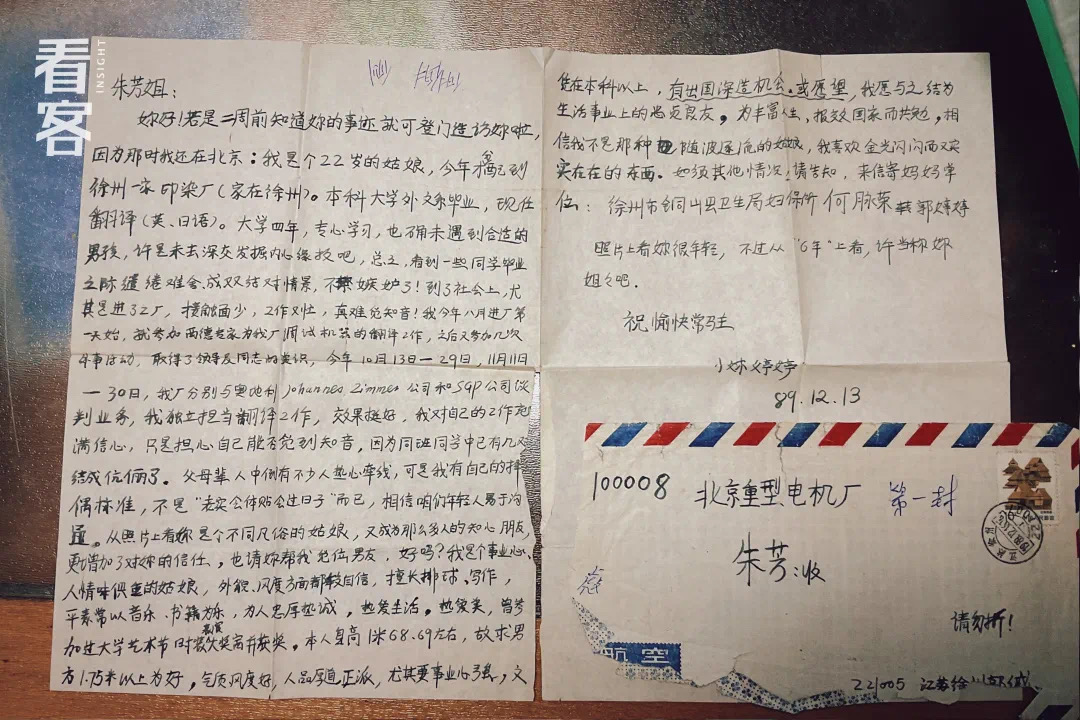 看客
INSIGHT
朱芳姐：
妳好！若是二周前知道妳的事迹就可登门造访妳啦，
因为那时我还在北京：我是个22岁的姑娘，今年分配到
徐州一家印染厂（家在徐州）。本科大学外文系毕业，现任
翻译（英、日语）。大学四年，专心学习，也确未遇到合适的
男孩，许是未去深交发掘内心缘故吧，总之，看到一些同学毕业
之际缱绻难舍、成双结对情景，不嫉妒了！到了社会上，尤
其是进工厂，接触面少，工作又忙，真难觅知音！我今年八月进厂第
一天始，就参加西德专家为我厂调试机器的翻译工作，之后又参加几次
外事活动，取得了领导及同志的赏识，今年10月13日一29日，11月11日
一30日，我厂分别与奥地利Johannes Zimmer公司和SGP公司谈
判业务，我独立担当翻译工作，效果挺好，我对自己的工作充
满信心，只是担心自己能否觅到知音，因为同班同学中已有几对
结成伉俪了。父母辈人中倒有不少人热心牵线，可是我有自己的择
偶标准，不是“老实会体贴会过日子”而已，相信咱们年轻人易于沟
通。从照片上看妳是个不同凡俗的姑娘，又成为那么多人的知心朋友，
更增加了对妳的信任，也请妳帮我觅位男友，好吗？我是个事业心、
人情味俱重的姑娘，外貌、风度方面都较自信，擅长排球、写作，
平素常以音乐、书籍为乐，为人忠厚热诚，热爱生活。热爱美，曾参
加过大学艺术节时装大奖赛并获奖。本人身高1米68.69左右，故求男
方1.75米以上为好，气质风度好，人品厚道正派，尤其要事业心强，文
凭在本科以上，有出国深造机会或愿望，我愿与之结为
生活事业上的忠贞良友，为丰富人生、报效国家而共勉，相
信我不是那种随波逐流的姑娘，我喜欢金光闪闪而又实
实在在的东西。如须其他情况，请告知，来信寄妈妈单
位：徐州市铜山县卫生局妇保所 何脉荣 转 郭婷婷
照片上看妳很年轻，不过从“6年”上看，许当称妳
姐姐吧。
祝愉快常驻
小妹婷婷
89.12.13
100008 北京重型电机厂 第一封
朱芳：收
请勿折！
航空
221005 江苏徐州